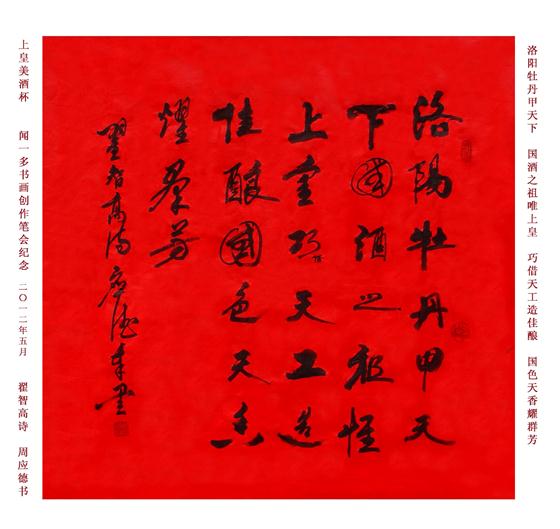 洛阳牡丹甲天下 国酒之祖唯上皇 巧借天工造佳酿 国色天香耀群芳
洛陽牡丹甲天
下國酒之祖惟
上皇巧借天工造
佳釀國色天香
燿羣芳
翟智高诗 應德書
上皇美酒杯 闻一多书画创作笔会纪念 二〇一二年五月 翟智高诗 周应德书